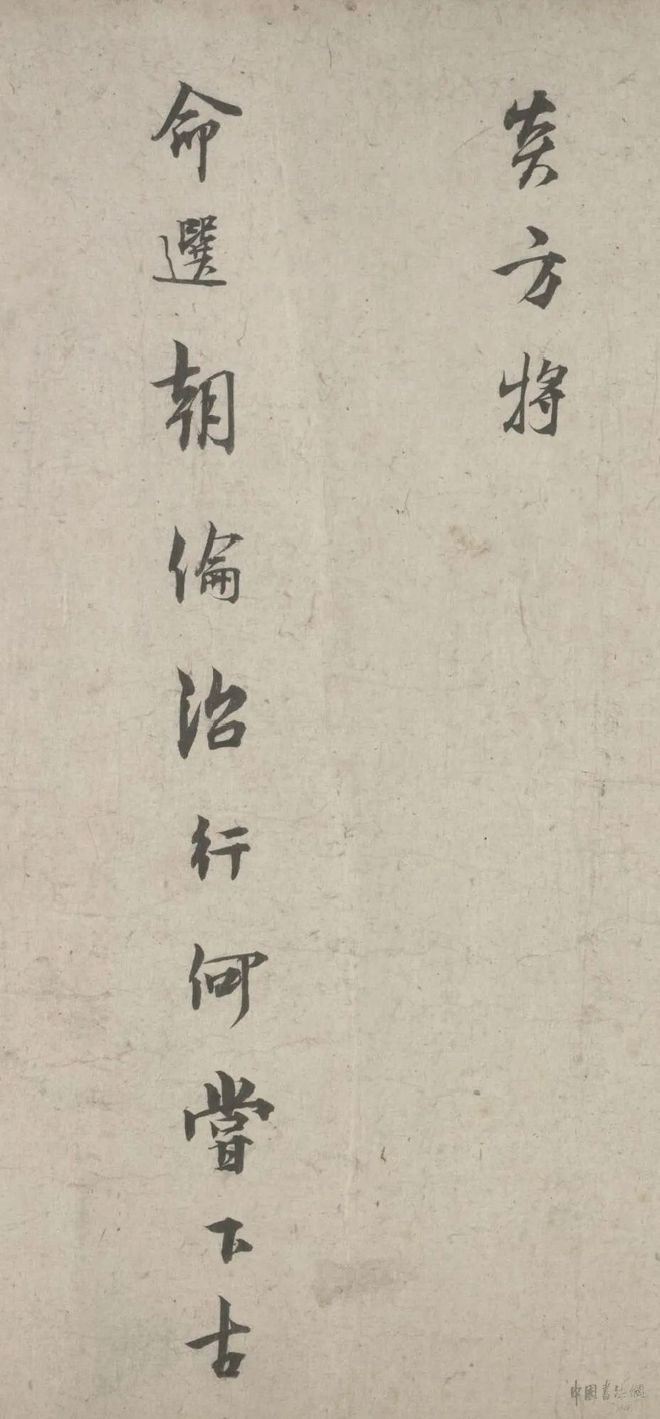 炎方将
命選朝倫治行何嘗下古
中国书法网